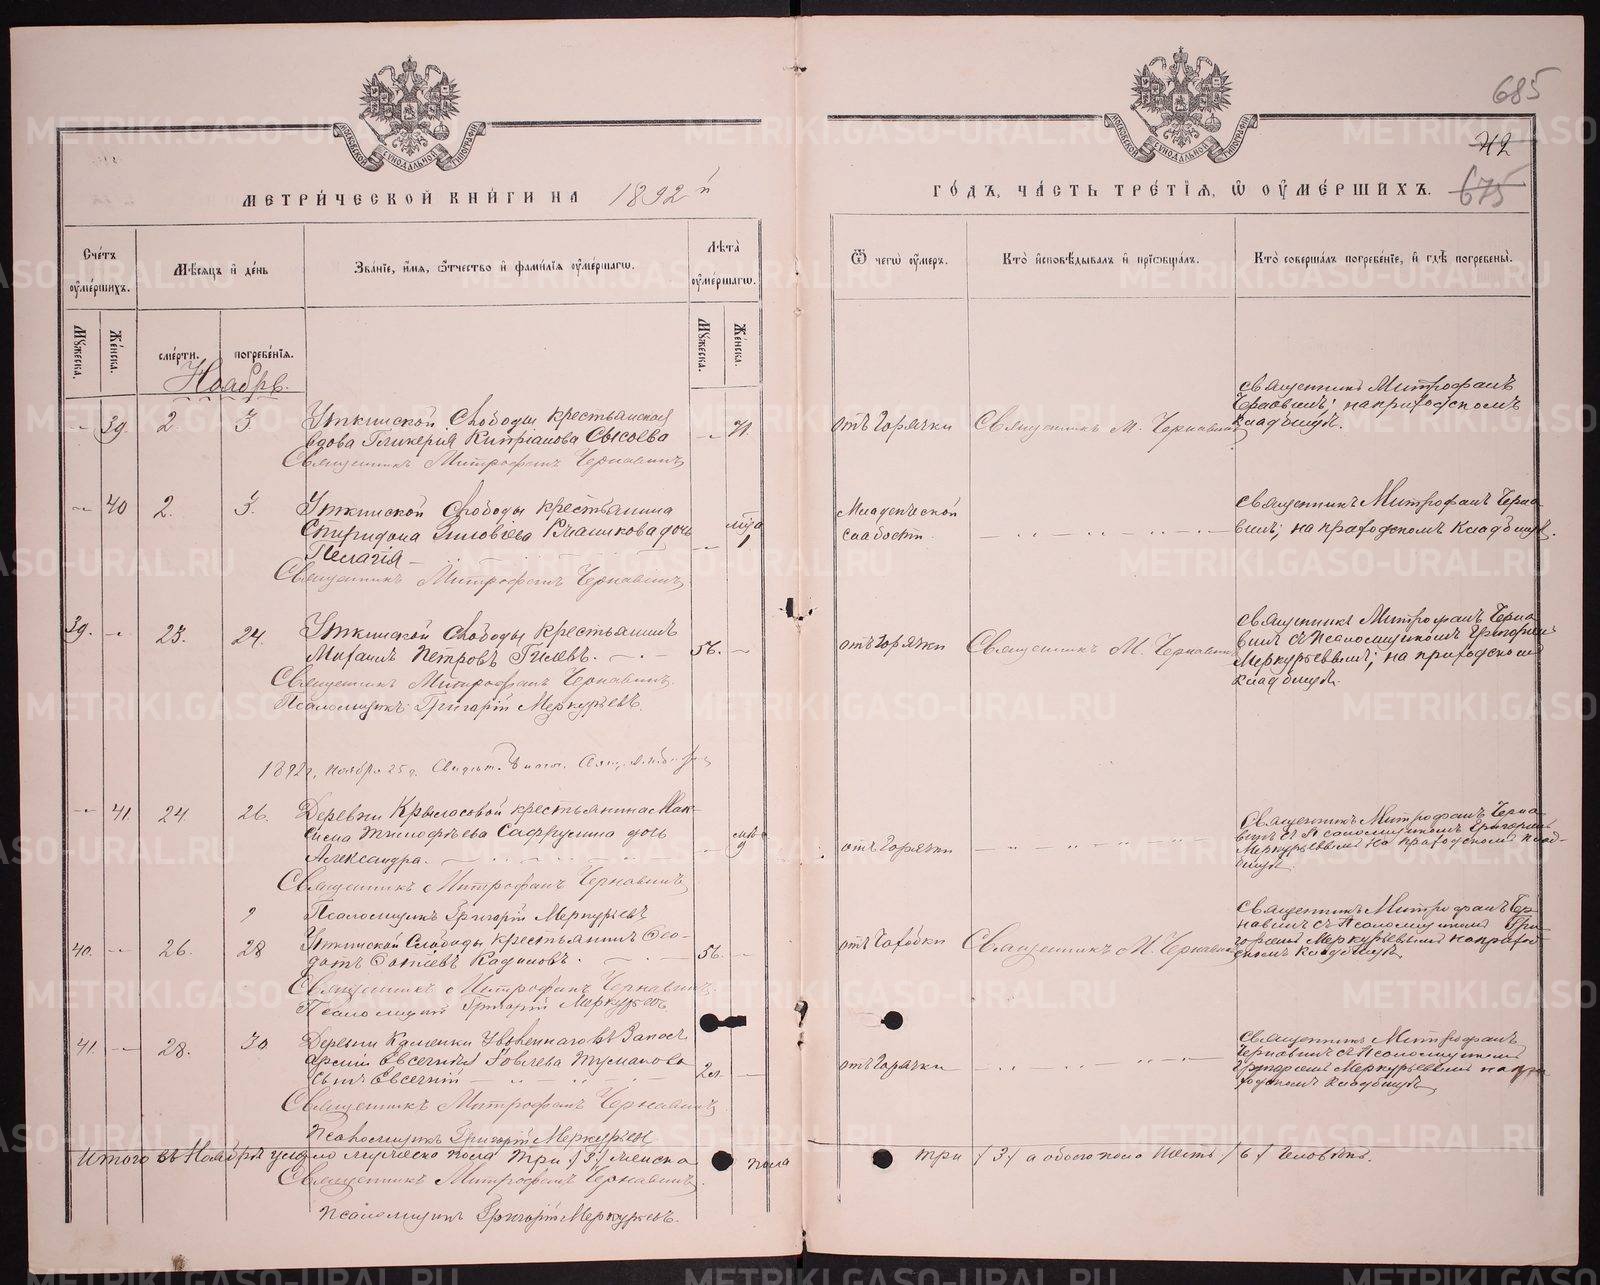 685
42
675
МОСКОВСКОЙ СУНОДАЛЬНОЙ ТИПОГРАФІИ
МОСКОВСКОЙ СУНОДАЛЬНОЙ ТИПОГРАФІИ
МЕТРИ́ЧЕСКОЙ КНИ́ГИ НА 1892 й
ГО́ДЪ, ЧА́СТЬ ТРЕ́ТІЯ, Ѡ ОУМЕ́РШИХЪ.
Сче́тъ оуме́ршихъ.
Мѣ́сяцъ и де́нь
Зва́ніе, и́мя, ѻ́тчество и фами́лія оуме́ршагѡ.
Лѣта̀ оуме́ршагѡ.
Ѿ чегѡ̀ оу́меръ.
Кто̀ исповѣ́дывалъ и пріѡбща́лъ.
Кто̀ соверша́лъ погребе́ніе, и гдѣ̀ погребены̀.
Му́жеска.
Же́нска.
сме́рти.
погребе́нія.
Му́жеска.
Же́нска.
Ноябрь.
39. 2. 3. Уткинской Слободы крестьянская
вдова Гликерія Кипріанова Сысоева 71.
Священникъ Митрофанъ Чернавинъ
отъ горячки
Священникъ М. Чернавинъ
Священникъ Митрофанъ
Чернавинъ; на приходскомъ
кладбищѣ.
40 2. 3. Уткинской Слободы крестьянина
Спиридона Зиновіева дочь
Пелагія 1
Священникъ Митрофанъ Чернавинъ
Младенческой
слабости
Священникъ Митрофанъ Черна
винъ; на приходскомъ кладбищѣ.
39. 23. 24. Уткинской Слободы крестьянинъ
Михаилъ Петровъ Гилевъ. 56.
Священникъ Митрофанъ Чернавинъ.
Псаломщикъ Григорій Меркурьевъ.
отъ горячки
Священникъ М. Чернавинъ
Священникъ Митрофанъ Черна
винъ съ Псаломщикомъ Григоріемъ
Меркурьевымъ; на приходскомъ
кладбищѣ.
1892 г. Ноября 25 г.
41. 24. 26. Деревни Крыласовой крестьянина Мак-
сима Тимофѣева дочь
Александра. 9
Священникъ Митрофанъ Чернавинъ
Псаломщикъ Григорій Меркурьевъ
отъ горячки
Священникъ Митрофанъ Черна
винъ съ Псаломщикомъ Григоріемъ
Меркурьевымъ на приходскомъ клад-
бищѣ
40. 26. 28 Уткинской Слободы крестьянинъ Ѳео-
дотъ 56.
Священникъ Митрофанъ Чернавинъ.
Псаломщикъ Григорій Меркурьевъ
отъ чахотки
Священникъ М. Чернавинъ
Священникъ Митрофанъ Чер
навинъ съ Псаломщикомъ Гри
горіемъ Меркурьевымъ на приход
скомъ кладбищѣ
41. 28. 30 Деревни Каменки уволеннаго въ запасъ
арміи Евсечнія Іовлева Туманова
сынъ Евсегній 2 л.
Священникъ Митрофанъ Чернавинъ
Псаломщикъ Григорій Меркурьевъ
отъ горячки
Священникъ Митрофанъ
Чернавинъ съ Псаломщикомъ
Григоріемъ Меркурьевымъ на при
ходскомъ кладбищѣ
Итого въ Ноябрѣ умерло мужеска пола три /3/ женска пола три /3/ а обоего пола шесть /6/ человѣкъ.
Священникъ Митрофанъ Чернавинъ.
Псаломщикъ Григорій Меркурьевъ.
METRIKI.GASO-URAL.RU